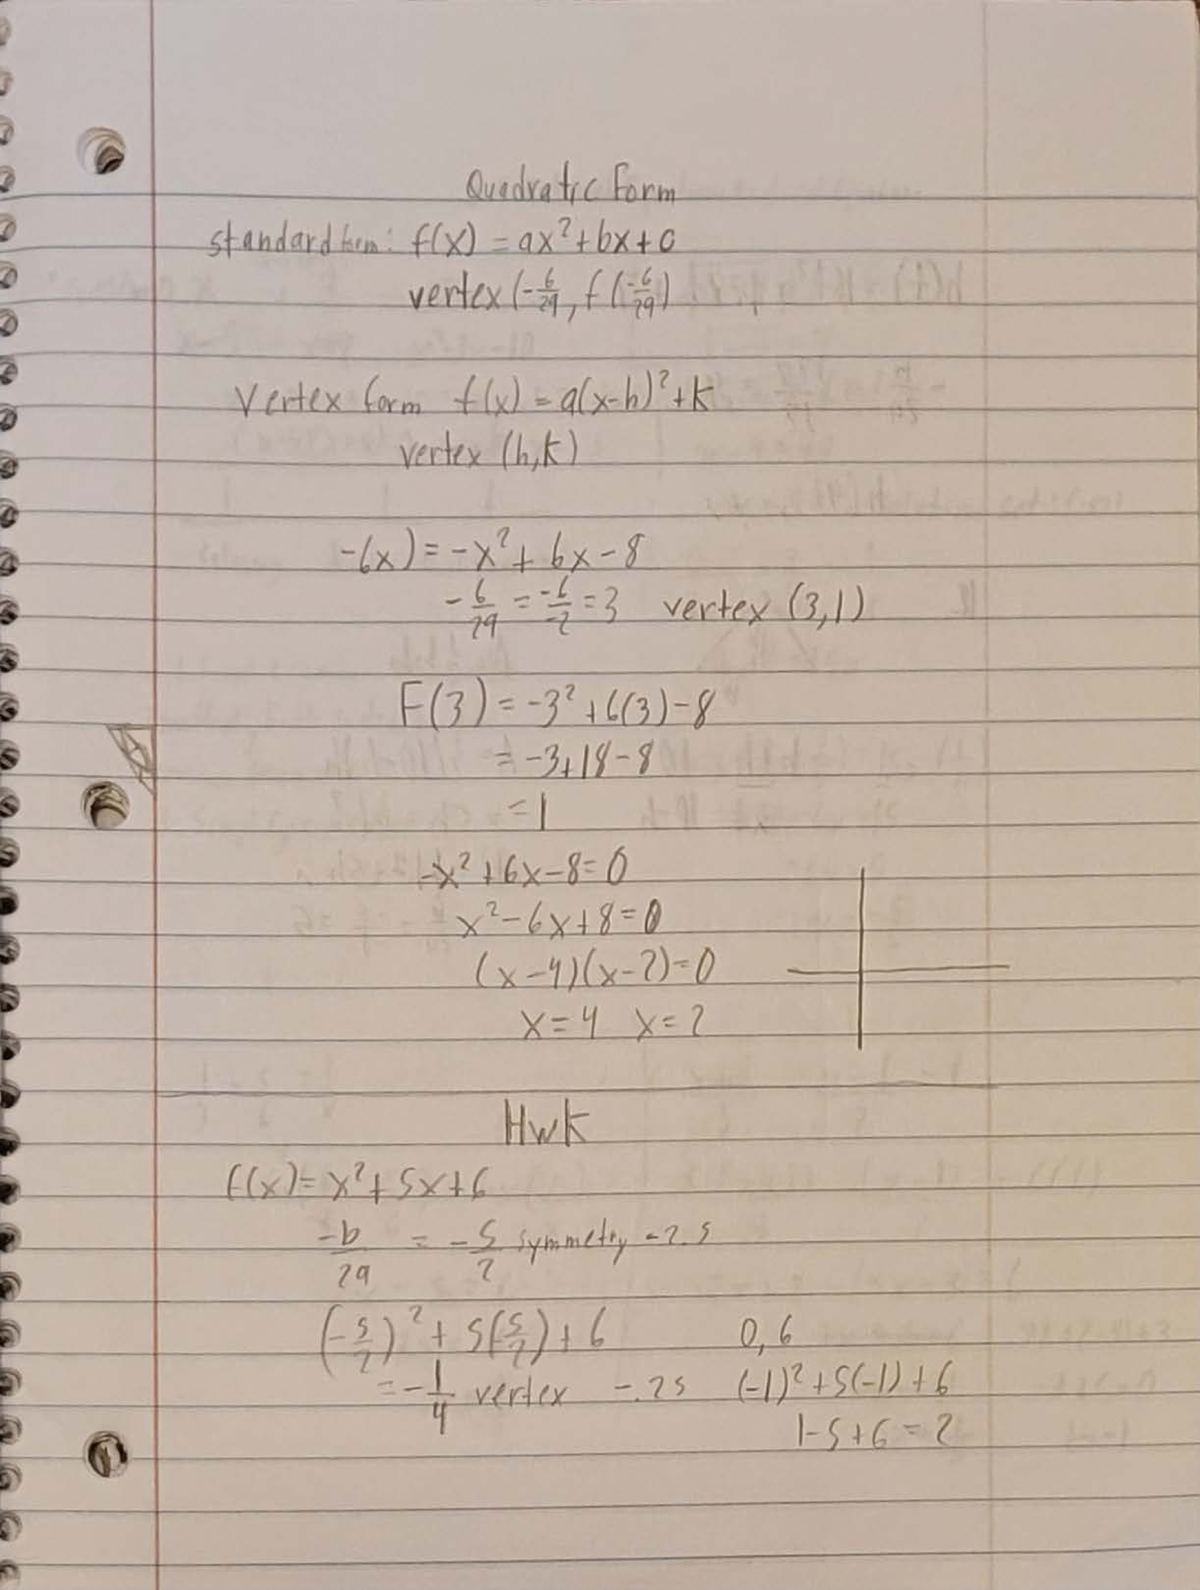 Quadratic Form
standard form: f(x) = ax² + bx + c
vertex (-b/2a, f(-b/2a)
Vertex form f(x) = a(x-h)² + k
vertex (h,k)
-(x) = -x² + 6x - 8
-6/2a = -6/-2 = 3 vertex (3,1)
F(3) = -3² + 6(3) - 8
= -3+18-8
= 1
-x² + 6x - 8 = 0
x² - 6x + 8 = 0
(x-4)(x-2) = 0
x = 4 x = 2
Hwk
f(x) = x² + 5x + 6
-b/2a = -5/2 symmetry -2.5
(-5/2)² + 5(5/2) + 6 0,6
= -1/4 vertex -.25 (-1)² + 5(-1) + 6
1-5+6 = 2